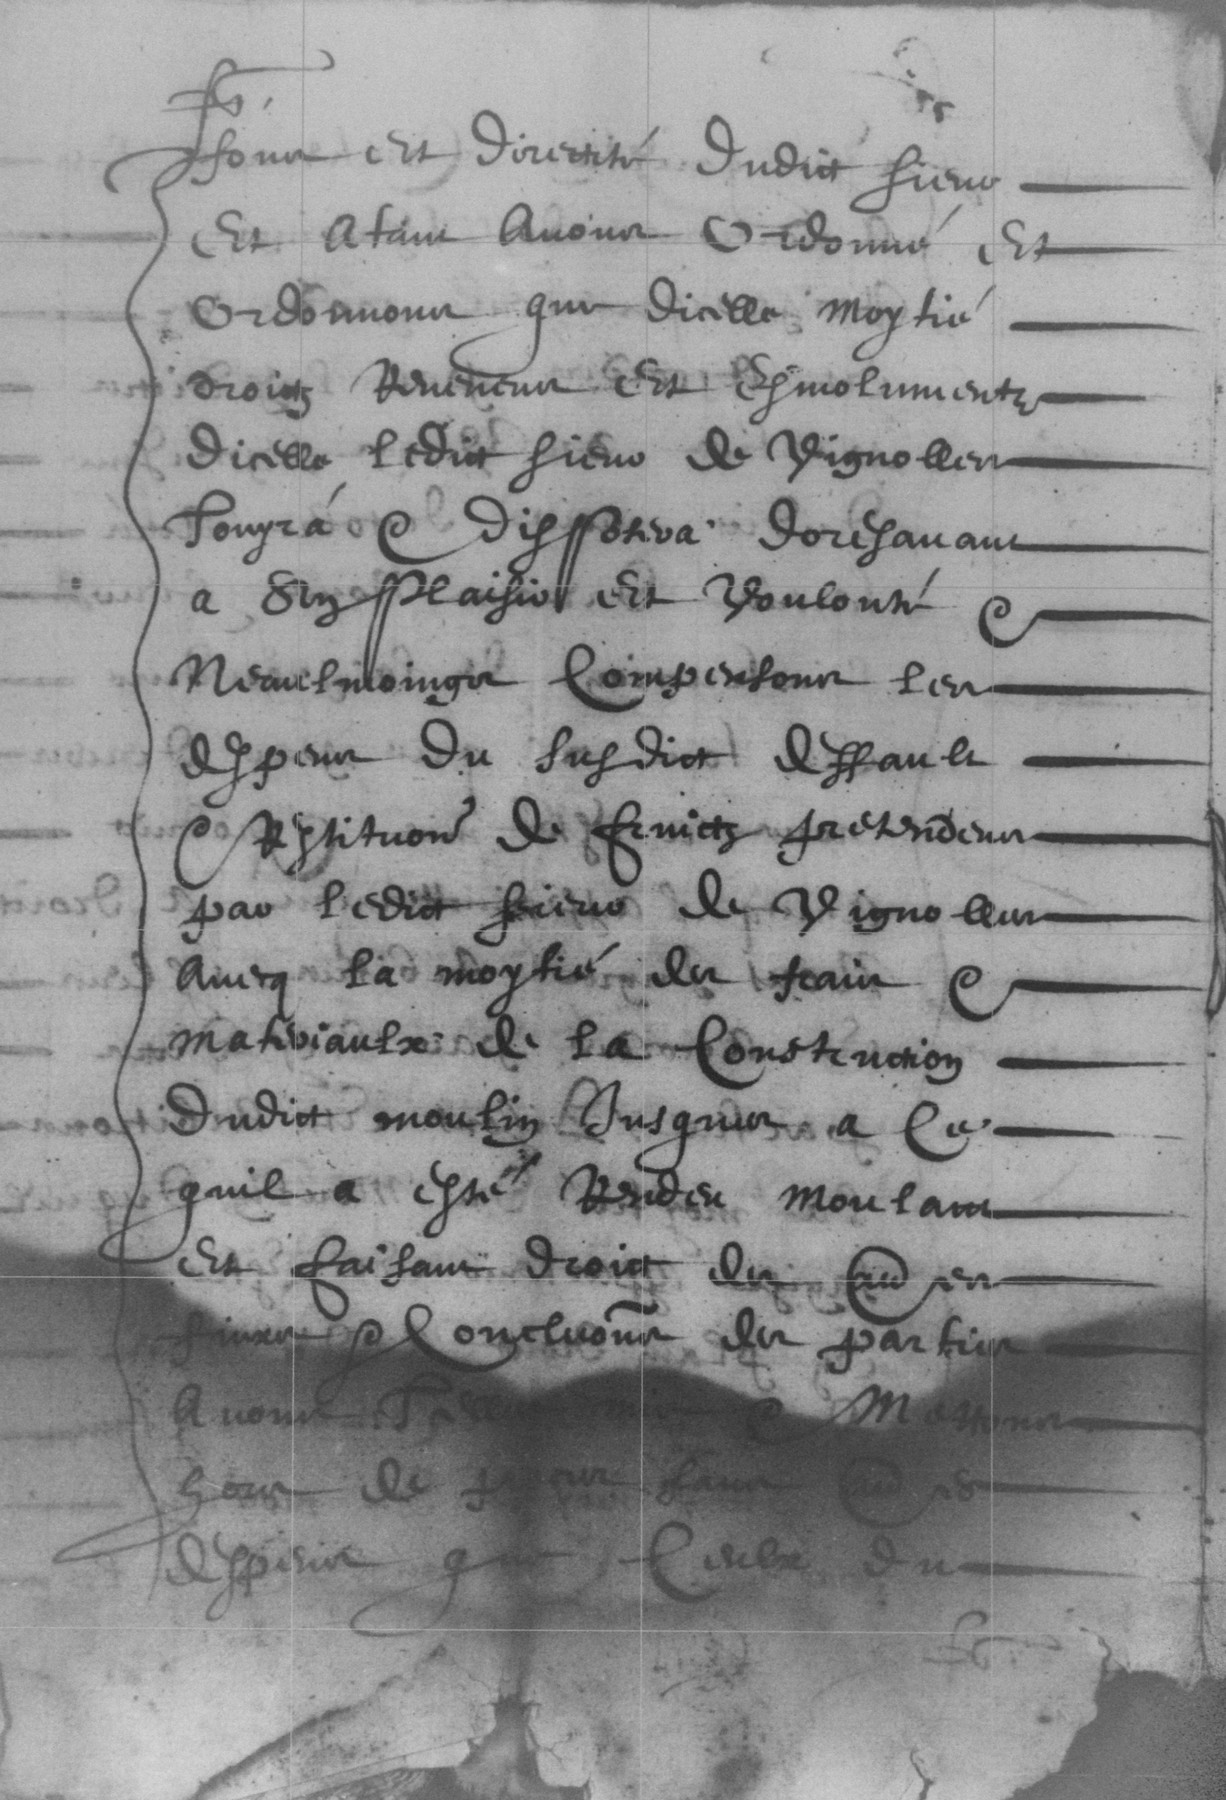 fons et directité dudict sieur
Et a tant avons Ordonné Et
Ordonnons que dicelle moytié
droictz Revenens Et Esmolumentz
dicelle ledict sieur de Vignolles
Jouyra & dispposera doresavant
a Son pplaisir Et Voulonté &
Neaulmoinges Compensons les
despens du susdict deffault
& Restitution de fruictz pretendens
par ledict sieur de Vignolles
Avecq la moytié des frais &
materiaulx de la Construction
dudict moulin Jusques a Ce
quil a esté Rendeu moulant
Et faisant droict des
Conclusions des parties
Avons & Mettons
hors de sans
despens que Ceulx du